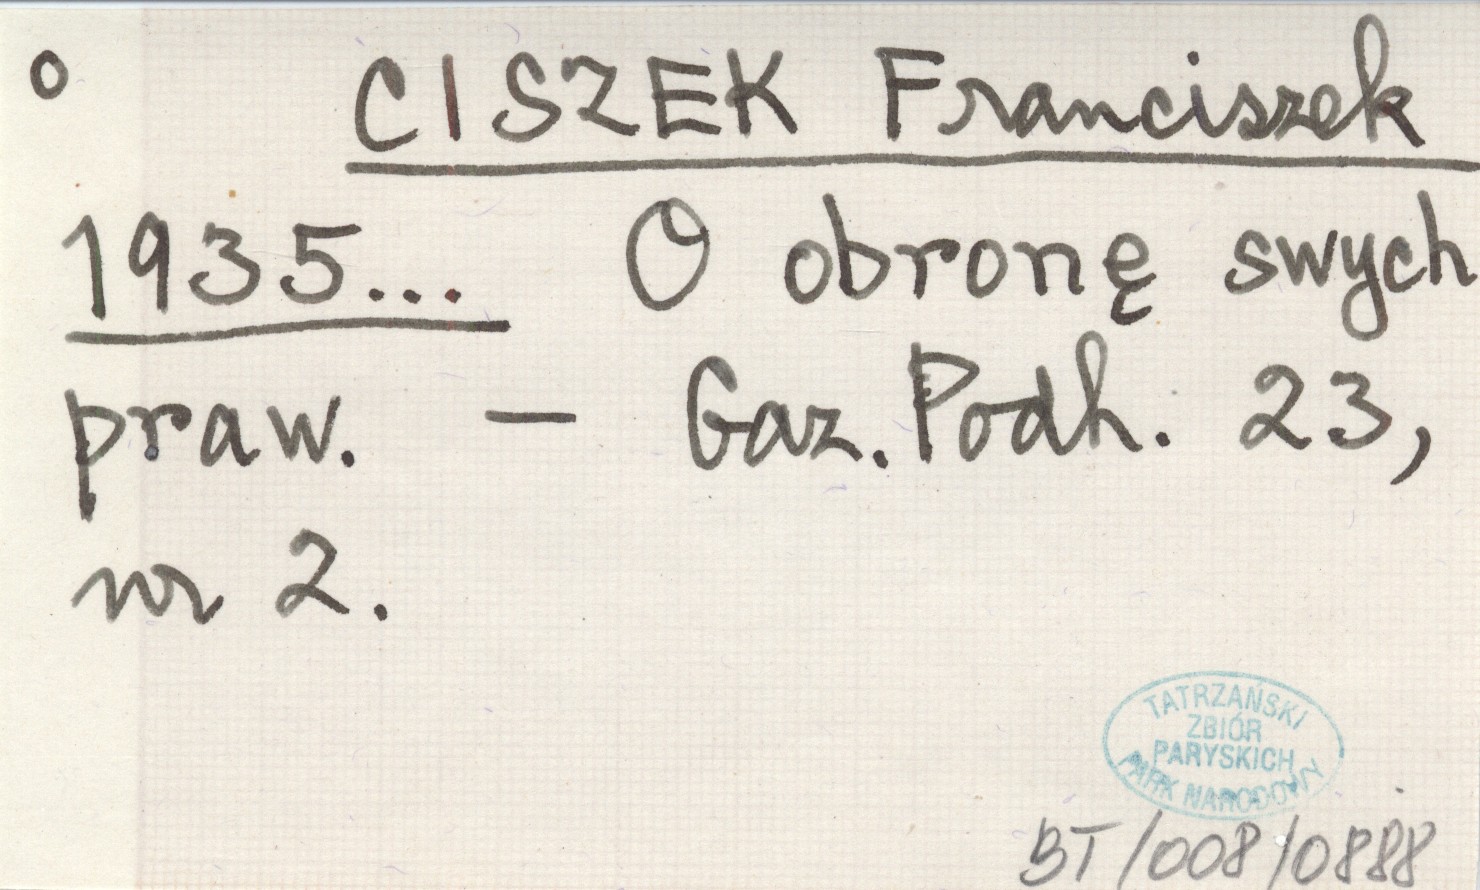 o CISZEK Franciszek
1935... O obronę swych
praw. — Gaz. Podh. 23,
nr 2.
TATRZAŃSKI
ZBIÓR
PARYSKICH
PARK NARODOWY
BT/008/0888